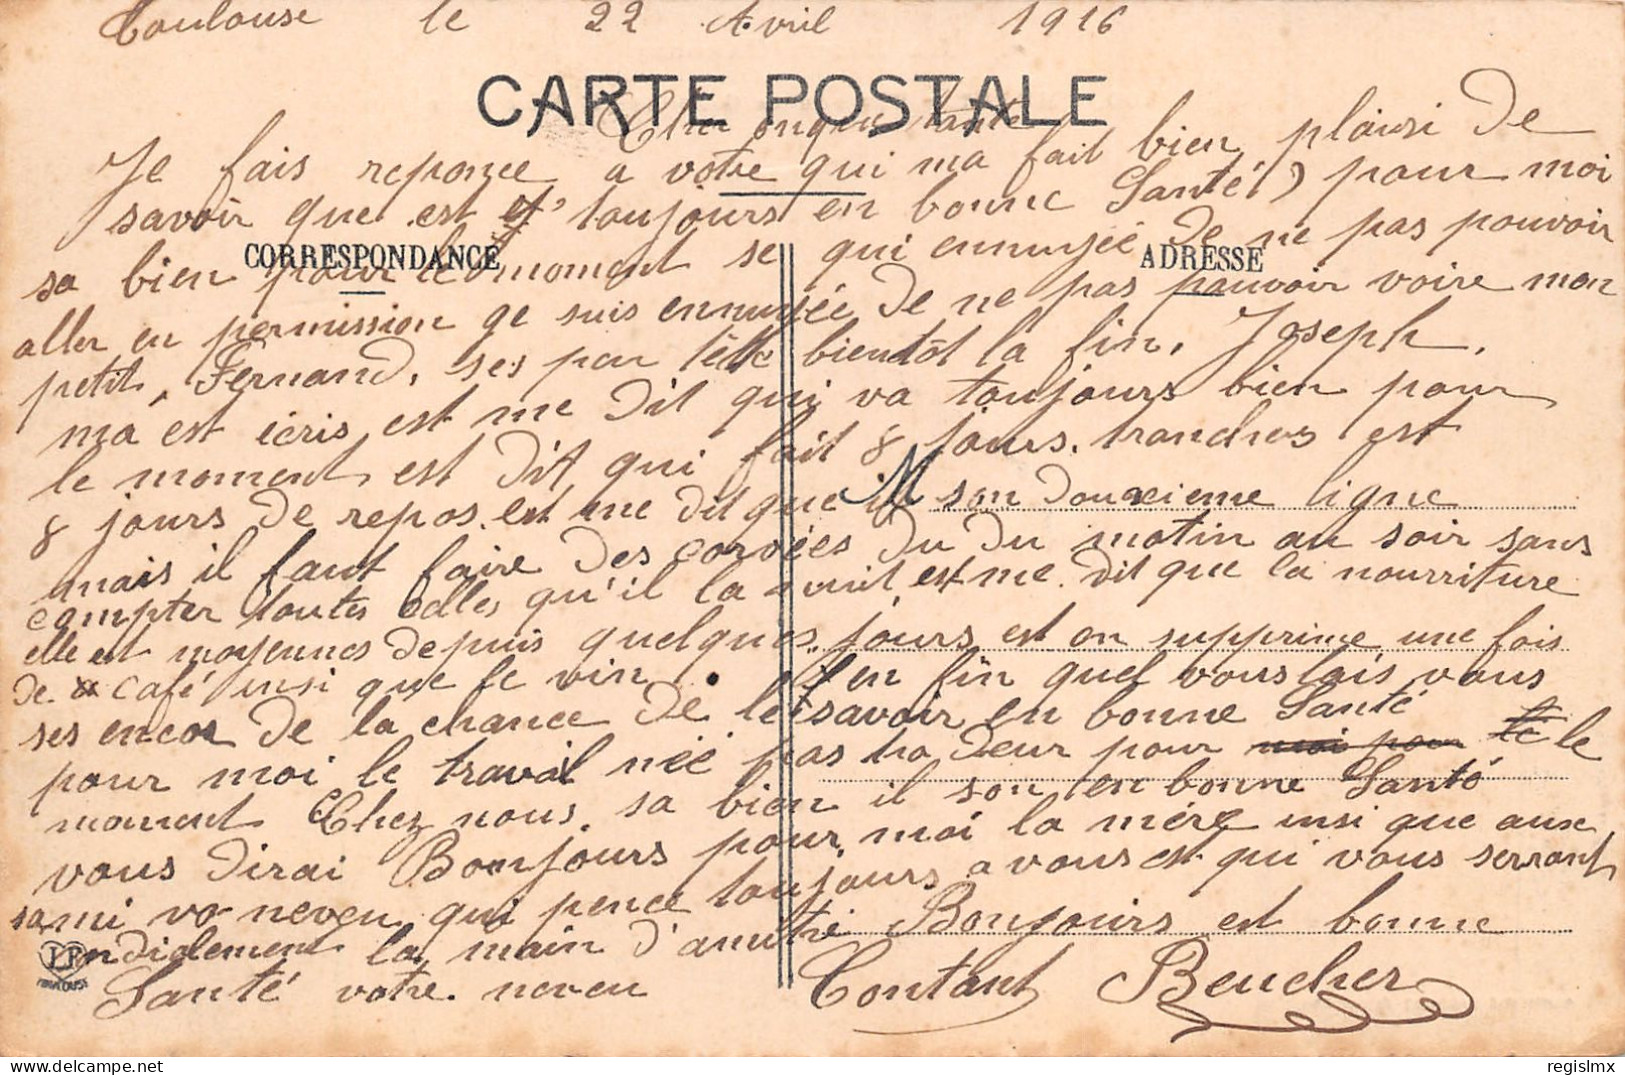 Toulouse le 22 Avril 1916
CARTE POSTALE
Cher onque tante
Je fais reponze a votre qui ma fait bien plaisi De
savoir que est toujours en bonne Santé) pour moi
CORRESPONDANCE
ADRESSE
sa bien pour le moment se qui ennuyée De ne pas pouvoir
aller en permission ge suis ennuyée De ne pas pouvoir voire mon
petit, Fernand, ses par bientôt la fin, Joseph,
ma est icris est me Dit qui va toujours bien pour
le moment est Dit qui fait 8 jours tranches est
8 jours De repos est me Dit que il son Douxieme ligne
M
mais il faut faire Des corvées Du Du matin au soir sans
compter toutes celles qu'il la nuit, est me Dit que la nourriture
elle est moyennes Depuis quelques jours est on supprime une fois
De café insi que le vin. en fin quel vous lais vous
ses encor De la chance De le savoir en bonne Santé
pour moi le travail née pas tro Deur pour moi pour le le
moment Chez nous sa bien il son en bonne Santé
vous Dirai Bonjours pour moi la mére insi que aux
sami vo neveu qui pence toujours a vous est qui vous serront
cordialement la main D'amitié Bonjours est bonne
Santé votre neveu Contant Beucher
regislmx